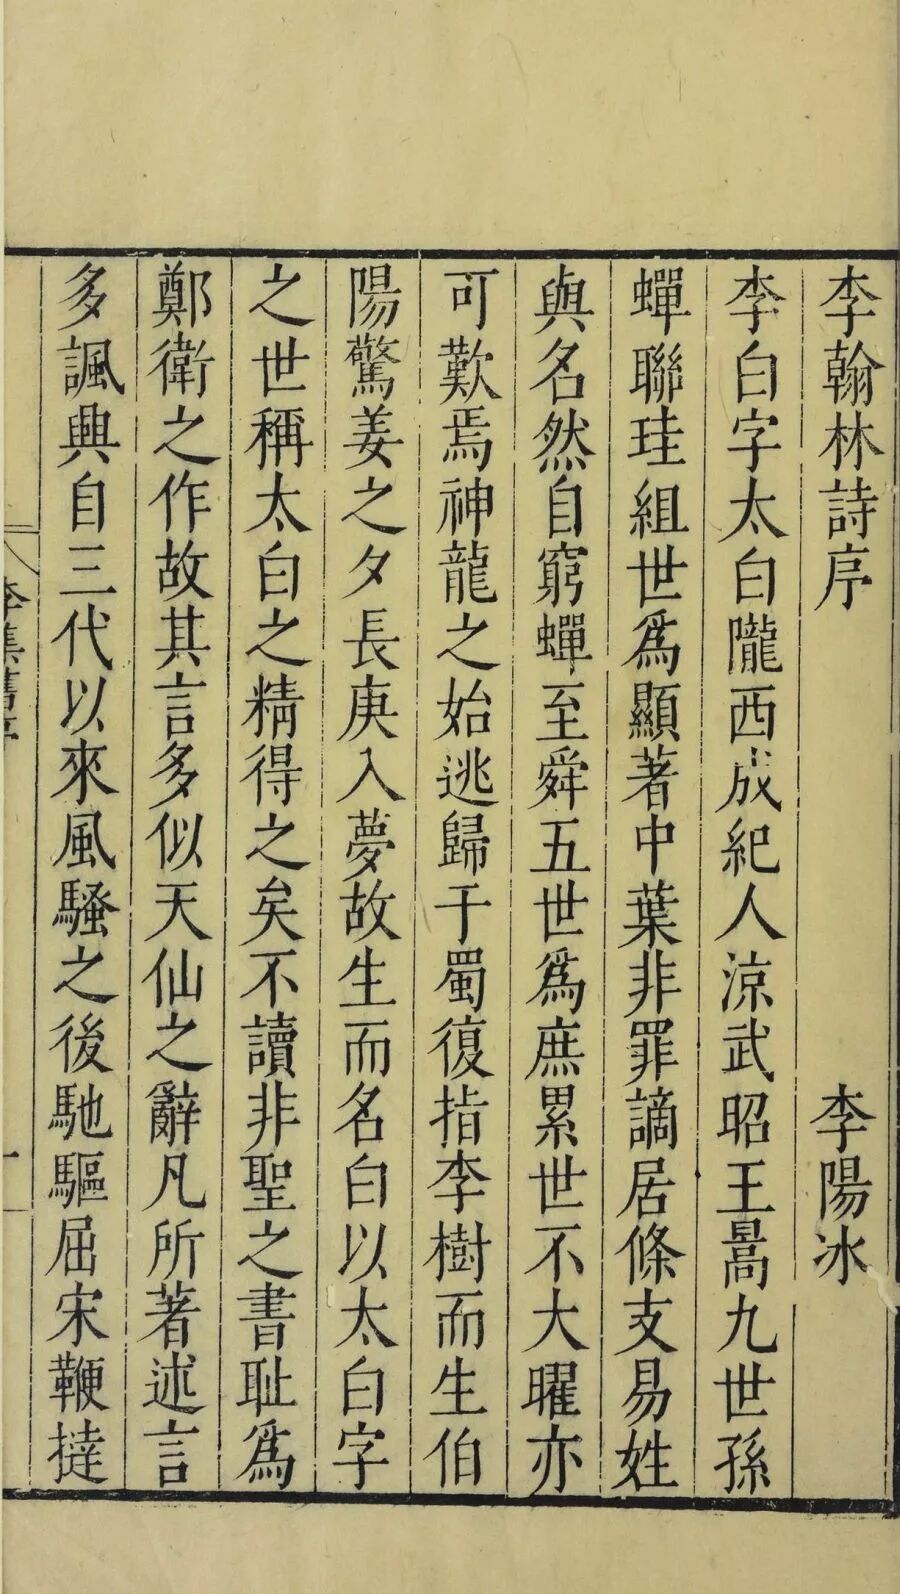 李翰林詩序 李陽冰
李白字太白隴西成紀人涼武昭王暠九世孫
蟬聯珪組世爲顯著中葉非罪謫居條支易姓
與名然自窮蟬至舜五世爲庶累世不大曜亦
可歎焉神龍之始逃歸于蜀復指李樹而生伯
陽驚姜之夕長庚入夢故生而名白以太白字
之世稱太白之精得之矣不讀非聖之書耻爲
鄭衛之作故其言多似天仙之辭凡所著述言
多諷興自三代以來風騷之後馳驅屈宋鞭撻
李集舊序 一